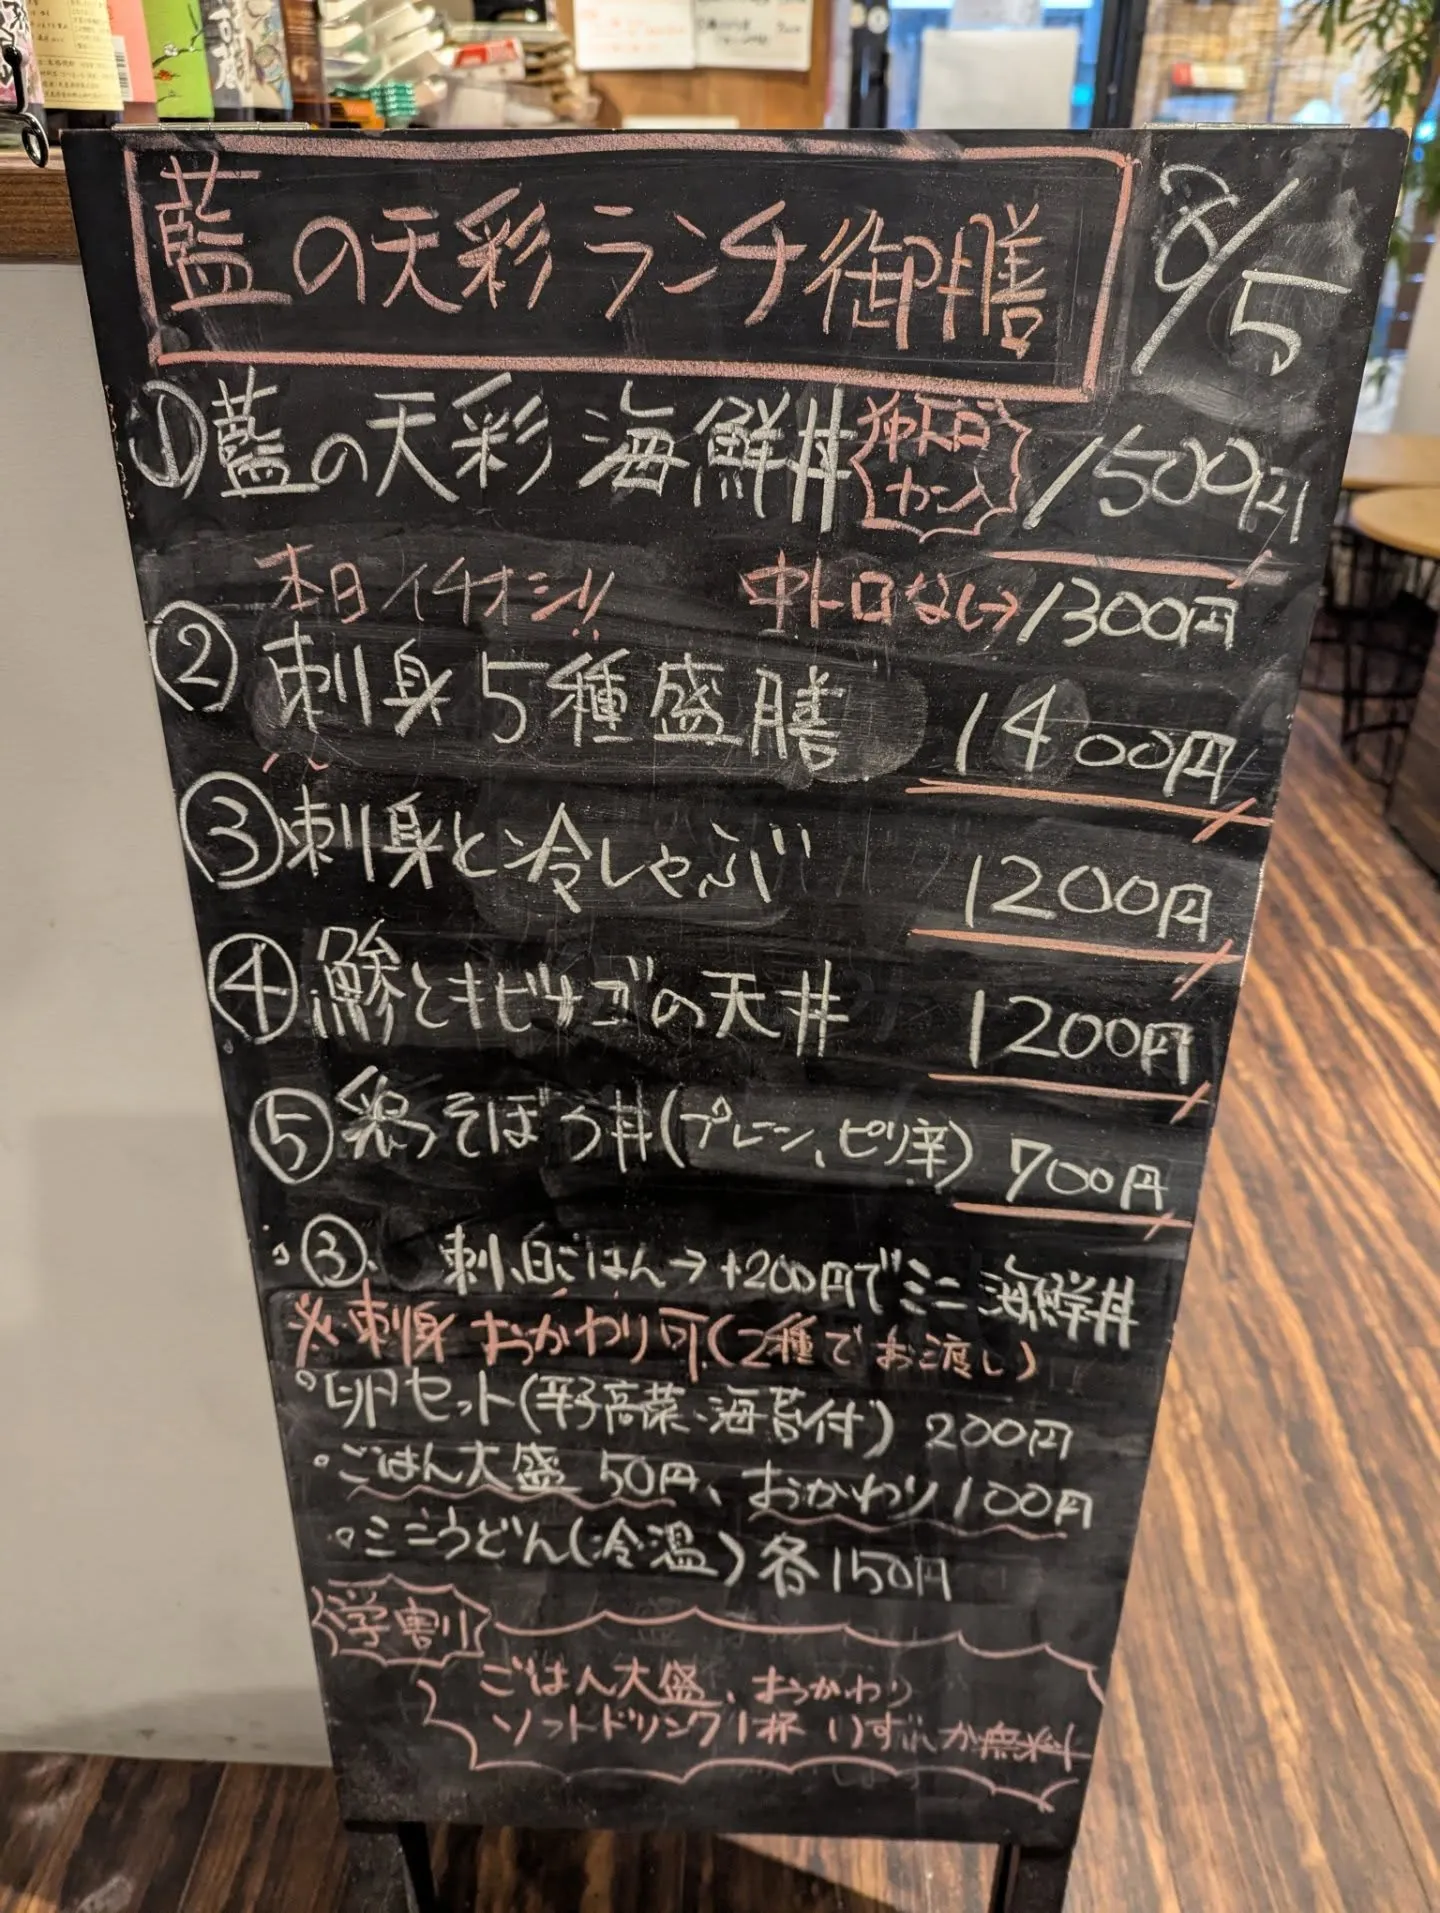 藍の天彩 ランチ御膳
8/5
①藍の天彩 海鮮丼 中トロ カン 1500円
本日イチオシ!! 中トロなし→1300円
② 刺身5種盛膳 1400円
③刺身と冷しゃぶ 1200円
④鯵とキビナゴの天丼 1200円
⑤鶏そぼろ丼(プレーン、ピリ辛) 700円
③、刺、白ごはん→+200円でミニ海鮮丼
※刺身おかわり可(2種でお渡し)
卵セット(辛子高菜、海苔付) 200円
ごはん大盛 50円、おかわり100円
ミニうどん(冷温)各150円
学割
ごはん大盛、おかわり
ソフトドリンク1杯 いずれか無料